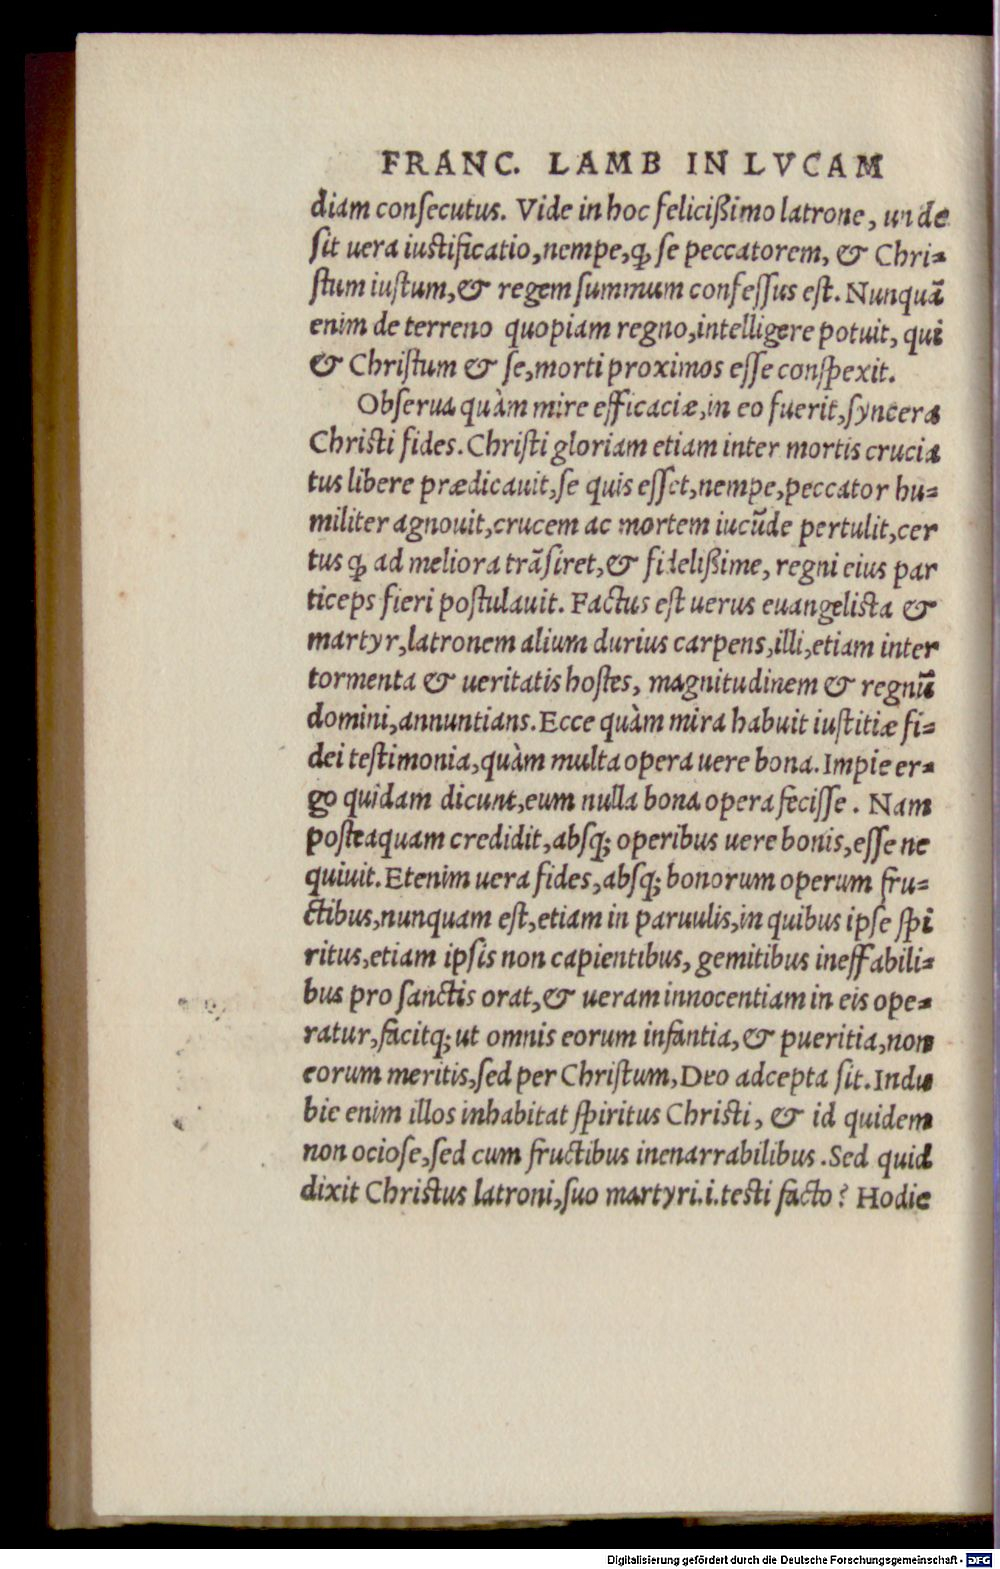 FRANC. LAMB IN LVCAM
diam consecutus. Vide in hoc felicißimo latrone, unde
sit uera iustificatio, nempe, ꝙ se peccatorem, & Chri-
stum iustum, & regem summum confessus est. Nunquã
enim de terreno quopiam regno, intelligere potuit, qui
& Christum & se, morti proximos esse conspexit.
Obserua quàm mire efficaciæ, in eo fuerit, syncera
Christi fides. Christi gloriam etiam inter mortis crucia
tus libere prædicauit, se quis esset, nempe, peccator hu-
militer agnouit, crucem ac mortem iucũde pertulit, cer
tus ꝙ ad meliora trãsiret, & fidelißime, regni eius par
ticeps fieri postulauit. Factus est uerus euangelista &
martyr, latronem alium durius carpens, illi, etiam inter
tormenta & ueritatis hostes, magnitudinem & regnũ
domini, annuntians. Ecce quàm mira habuit iustitiæ fi-
dei testimonia, quàm multa opera uere bona. Impie er-
go quidam dicunt, eum nulla bona opera fecisse. Nam
posteaquam credidit, absq; operibus uere bonis, esse ne
quiuit. Etenim uera fides, absq; bonorum operum fru-
ctibus, nunquam est, etiam in paruulis, in quibus ipse spi
ritus, etiam ipsis non capientibus, gemitibus ineffabili-
bus pro sanctis orat, & ueram innocentiam in eis ope-
ratur, facitq; ut omnis eorum infantia, & pueritia, non
eorum meritis, sed per Christum, Deo adcepta sit. Indu
bie enim illos inhabitat spiritus Christi, & id quidem
non ociose, sed cum fructibus inenarrabilibus. Sed quid
dixit Christus latroni, suo martyri .i. testi facto? Hodie
Digitalisierung gefördert durch die Deutsche Forschungsgemeinschaft - DFG